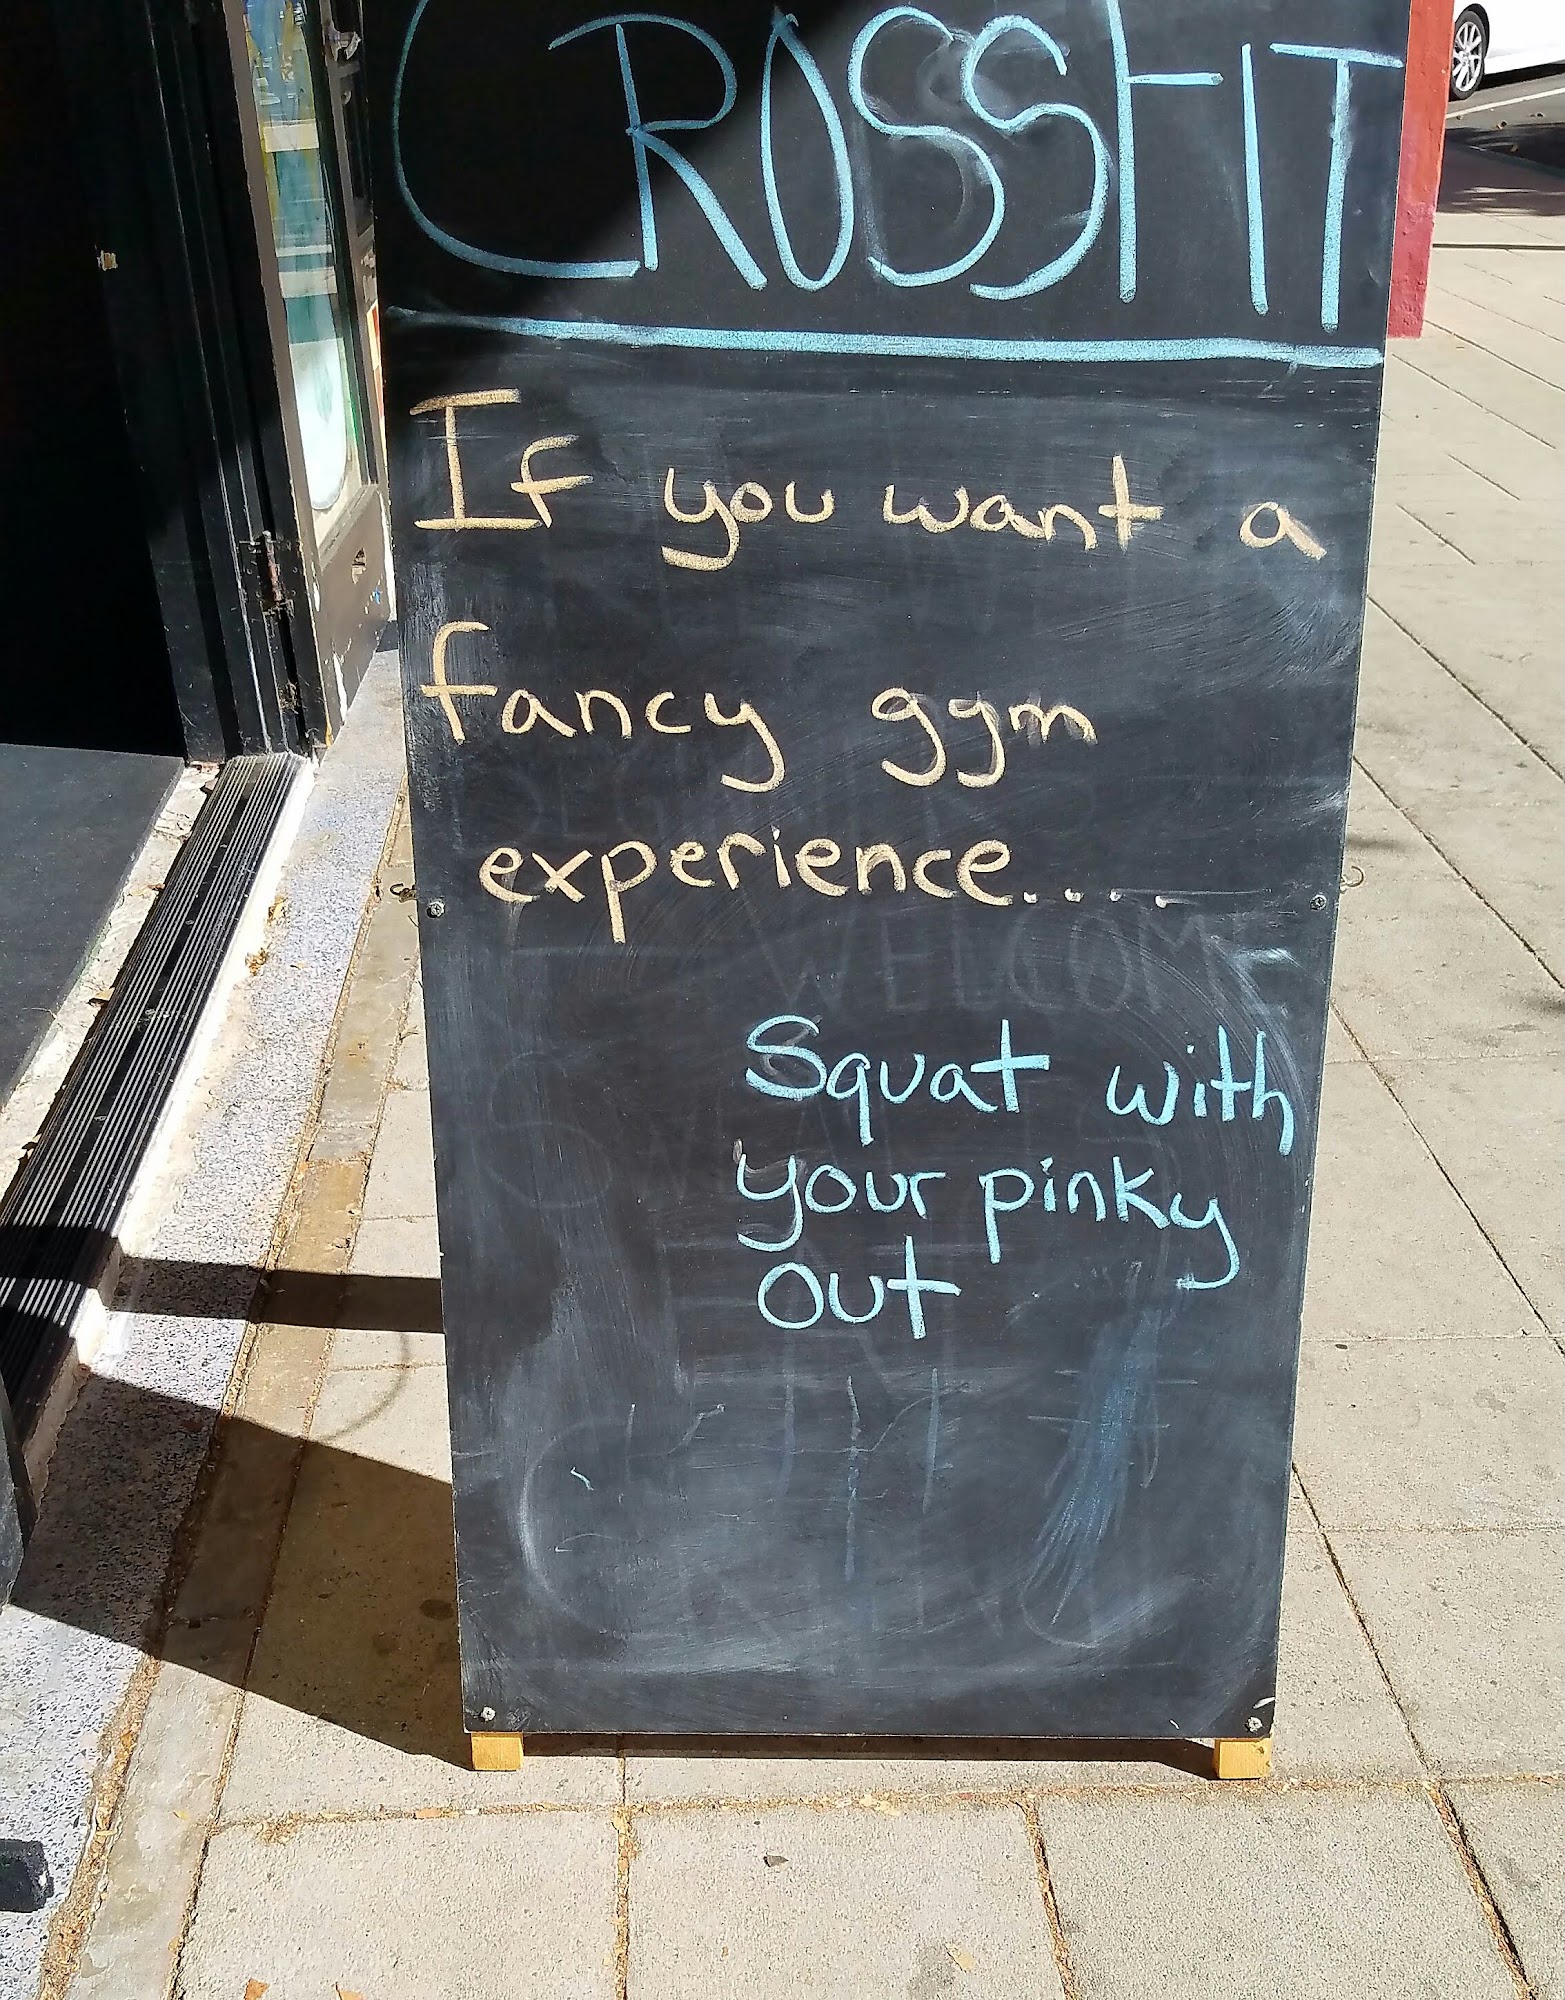 CROSSFIT
If you want a
fancy gym
experience....
WELCOME
Squat with
your pinky
out